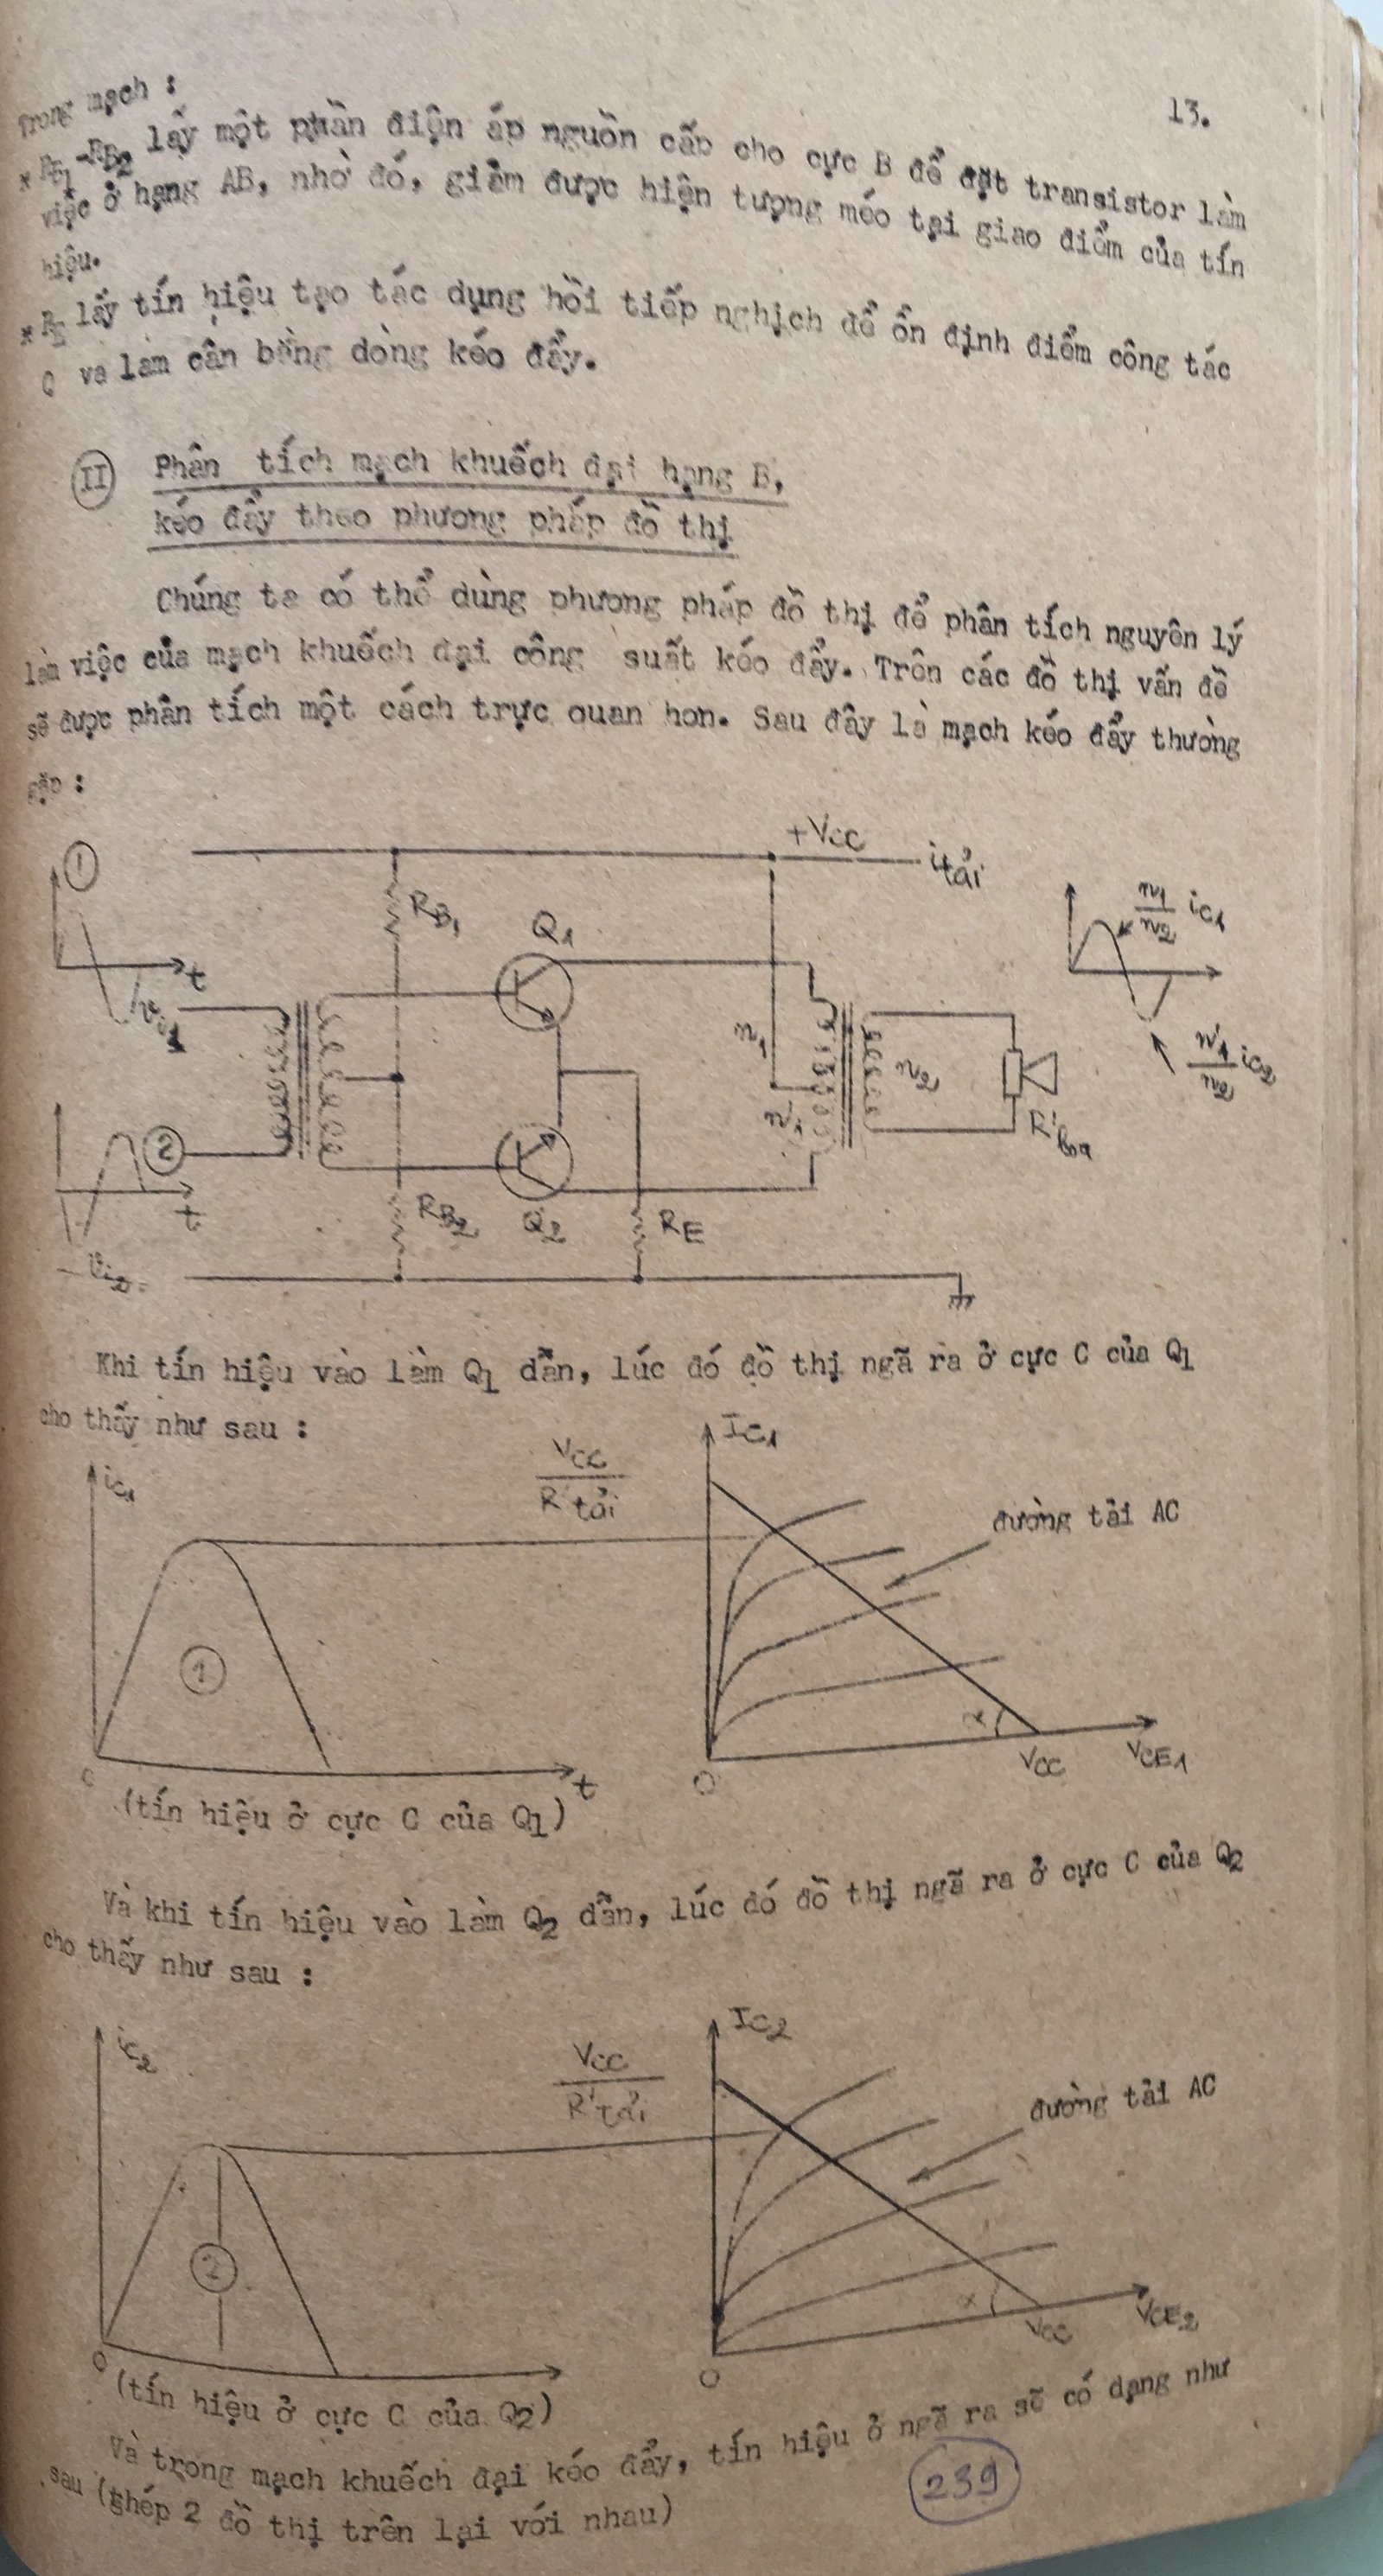 13.
Trong mạch :
* RB1 -RB2 lấy một phần điện áp nguồn cấp cho cực B để đặt transistor làm
việc ở hạng AB, nhờ đó, giảm được hiện tượng méo tại giao điểm của tín
hiệu.
* RE lấy tín hiệu tạo tác dụng hồi tiếp nghịch để ổn định điểm công tác
Q và làm cân bằng dòng kéo đẩy.
II Phân tích mạch khuếch đại hạng B,
kéo đẩy theo phương pháp đồ thị
Chúng ta có thể dùng phương pháp đồ thị để phân tích nguyên lý
làm việc của mạch khuếch đại công suất kéo đẩy. Trên các đồ thị vấn đề
sẽ được phân tích một cách trực quan hơn. Sau đây là mạch kéo đẩy thường
gặp :
1
+Vcc
itải
RB1
Q1
n1/n2 ic1
t
vi1
n1
n2
n1
n1/n2 ic2
R'loa
2
t
RB2
Q2
RE
vi2
Khi tín hiệu vào làm Q1 dẫn, lúc đó đồ thị ngã ra ở cực C của Q1
cho thấy như sau :
ic1
Vcc/R'tải
Ic1
đường tải AC
1
α
O
t
O
Vcc
VCE1
(tín hiệu ở cực C của Q1)
Và khi tín hiệu vào làm Q2 dẫn, lúc đó đồ thị ngã ra ở cực C của Q2
cho thấy như sau :
ic2
Vcc/R'tải
Ic2
đường tải AC
2
α
O
O
Vcc
VCE2
(tín hiệu ở cực C của Q2)
Và trong mạch khuếch đại kéo đẩy, tín hiệu ở ngã ra sẽ có dạng như
sau (ghép 2 đồ thị trên lại với nhau)
239